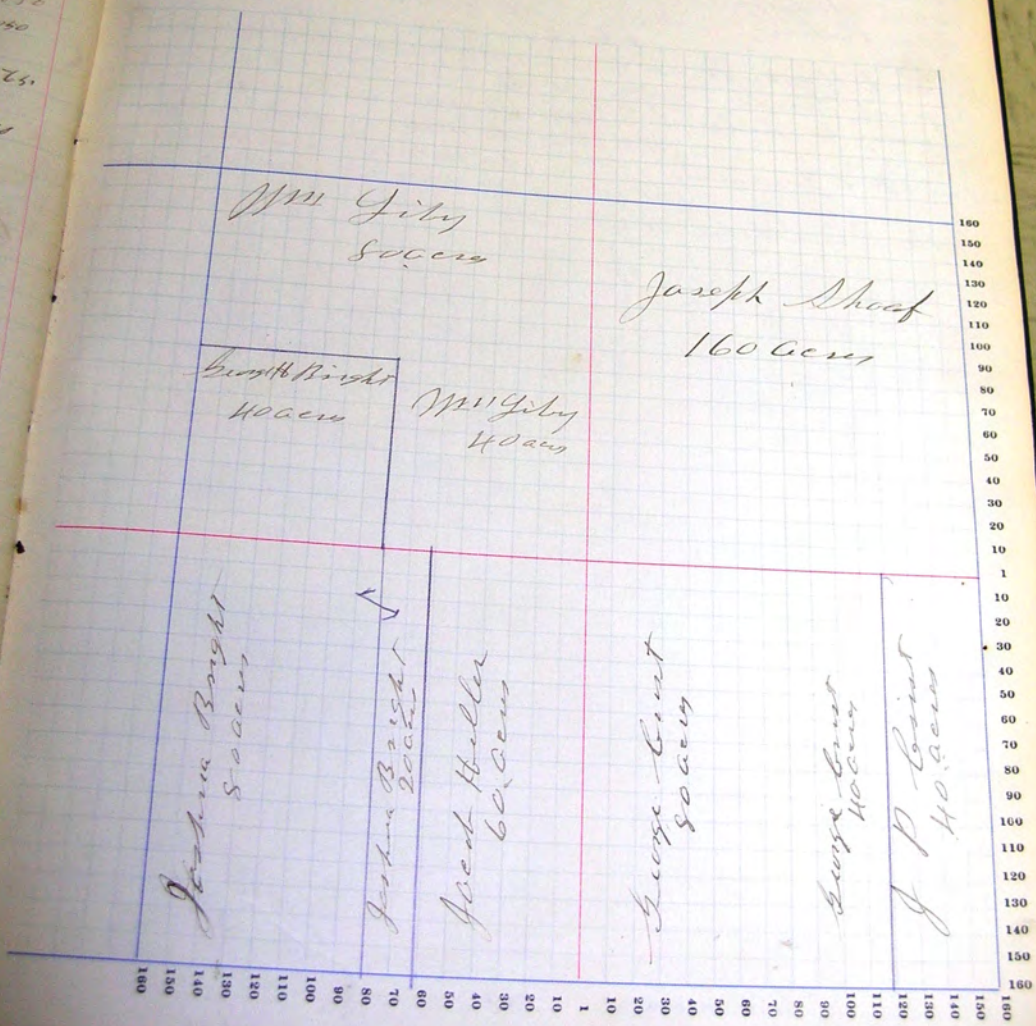 Wm
80 acres
Joseph Shoaf
160 acres
Bright
40 acres
Wm
40 acres
Joshua Bright
80 acres
Joshua Bright
20 acres
Jacob Heller
60 acres
George
80 acres
George
40 acres
J P
40 acres
160
150
140
130
120
110
100
90
80
70
60
50
40
30
20
10
1
10
20
30
40
50
60
70
80
90
100
110
120
130
140
150
160
160 150 140 130 120 110 100 90 80 70 60 50 40 30 20 10 1 10 20 30 40 50 60 70 80 90 100 110 120 130 140 150 160